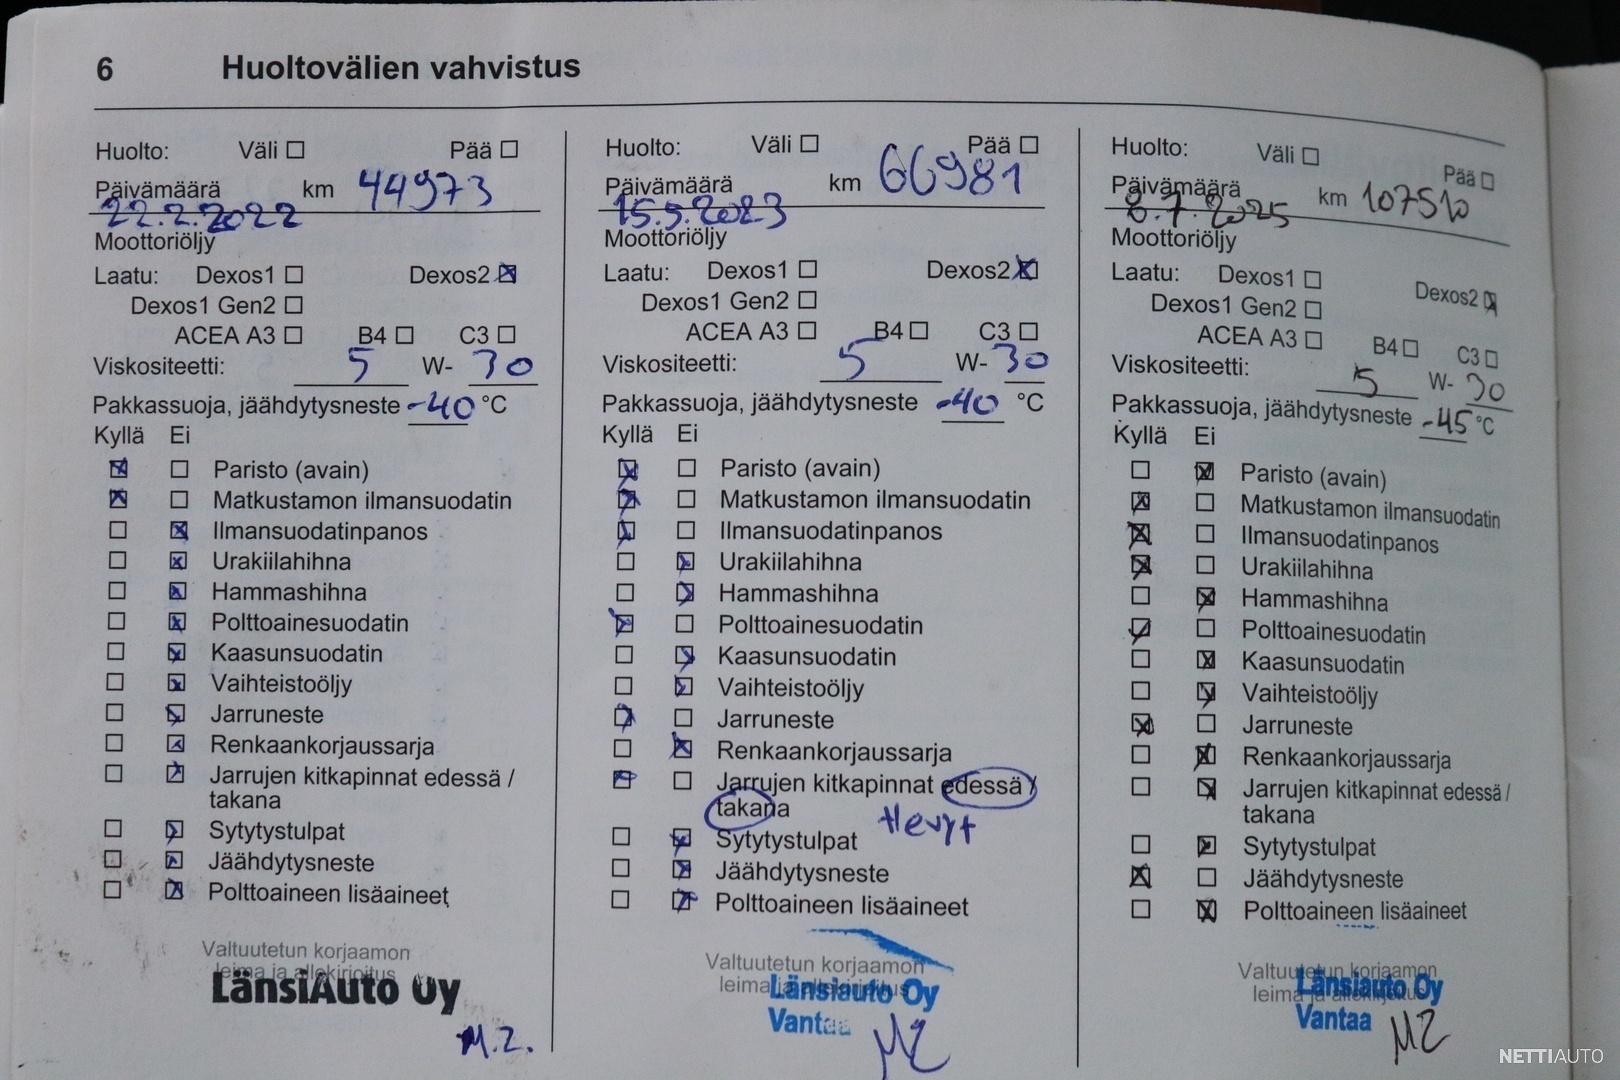 6 Huoltovälien vahvistus
Huolto: Väli ☐ Pää ☐
Päivämäärä km 44973
22.2.2022
Moottoriöljy
Laatu: Dexos1 ☐ Dexos2 ☒
Dexos1 Gen2 ☐
ACEA A3 ☐ B4 ☐ C3 ☐
Viskositeetti: 5 W- 30
Pakkassuoja, jäähdytysneste -40 °C
Kyllä Ei
☒ ☐ Paristo (avain)
☒ ☐ Matkustamon ilmansuodatin
☐ ☒ Ilmansuodatinpanos
☐ ☒ Urakiilahihna
☐ ☒ Hammashihna
☐ ☒ Polttoainesuodatin
☐ ☒ Kaasunsuodatin
☐ ☒ Vaihteistoöljy
☐ ☒ Jarruneste
☐ ☒ Renkaankorjaussarja
☐ ☒ Jarrujen kitkapinnat edessä /
takana
☐ ☒ Sytytystulpat
☐ ☒ Jäähdytysneste
☐ ☒ Polttoaineen lisäaineet
Valtuutetun korjaamon
leima ja allekirjoitus
LänsiAuto Oy
M.Z.
Huolto: Väli ☐ Pää ☐
Päivämäärä km 66981
15.5.2023
Moottoriöljy
Laatu: Dexos1 ☐ Dexos2 ☒
Dexos1 Gen2 ☐
ACEA A3 ☐ B4 ☐ C3 ☐
Viskositeetti: 5 W- 30
Pakkassuoja, jäähdytysneste -40 °C
Kyllä Ei
☒ ☐ Paristo (avain)
☒ ☐ Matkustamon ilmansuodatin
☒ ☐ Ilmansuodatinpanos
☐ ☒ Urakiilahihna
☐ ☒ Hammashihna
☒ ☐ Polttoainesuodatin
☐ ☒ Kaasunsuodatin
☐ ☒ Vaihteistoöljy
☒ ☐ Jarruneste
☐ ☒ Renkaankorjaussarja
☒ ☐ Jarrujen kitkapinnat edessä /
takana
☐ ☒ Sytytystulpat
☐ ☒ Jäähdytysneste
☐ ☒ Polttoaineen lisäaineet
Valtuutetun korjaamon
leima ja allekirjoitus
Länsiauto Oy
Vantaa
MZ
Huolto: Väli ☐ Pää ☐
Päivämäärä km 107510
8.7.2025
Moottoriöljy
Laatu: Dexos1 ☐ Dexos2 ☒
Dexos1 Gen2 ☐
ACEA A3 ☐ B4 ☐ C3 ☐
Viskositeetti: 5 W- 30
Pakkassuoja, jäähdytysneste -45 °C
Kyllä Ei
☐ ☒ Paristo (avain)
☒ ☐ Matkustamon ilmansuodatin
☒ ☐ Ilmansuodatinpanos
☒ ☐ Urakiilahihna
☐ ☒ Hammashihna
☒ ☐ Polttoainesuodatin
☐ ☒ Kaasunsuodatin
☐ ☒ Vaihteistoöljy
☒ ☐ Jarruneste
☐ ☒ Renkaankorjaussarja
☐ ☒ Jarrujen kitkapinnat edessä /
takana
☐ ☒ Sytytystulpat
☒ ☐ Jäähdytysneste
☐ ☒ Polttoaineen lisäaineet
Valtuutetun korjaamon
leima ja allekirjoitus
Länsiauto Oy
Vantaa
MZ
NETTIAUTO